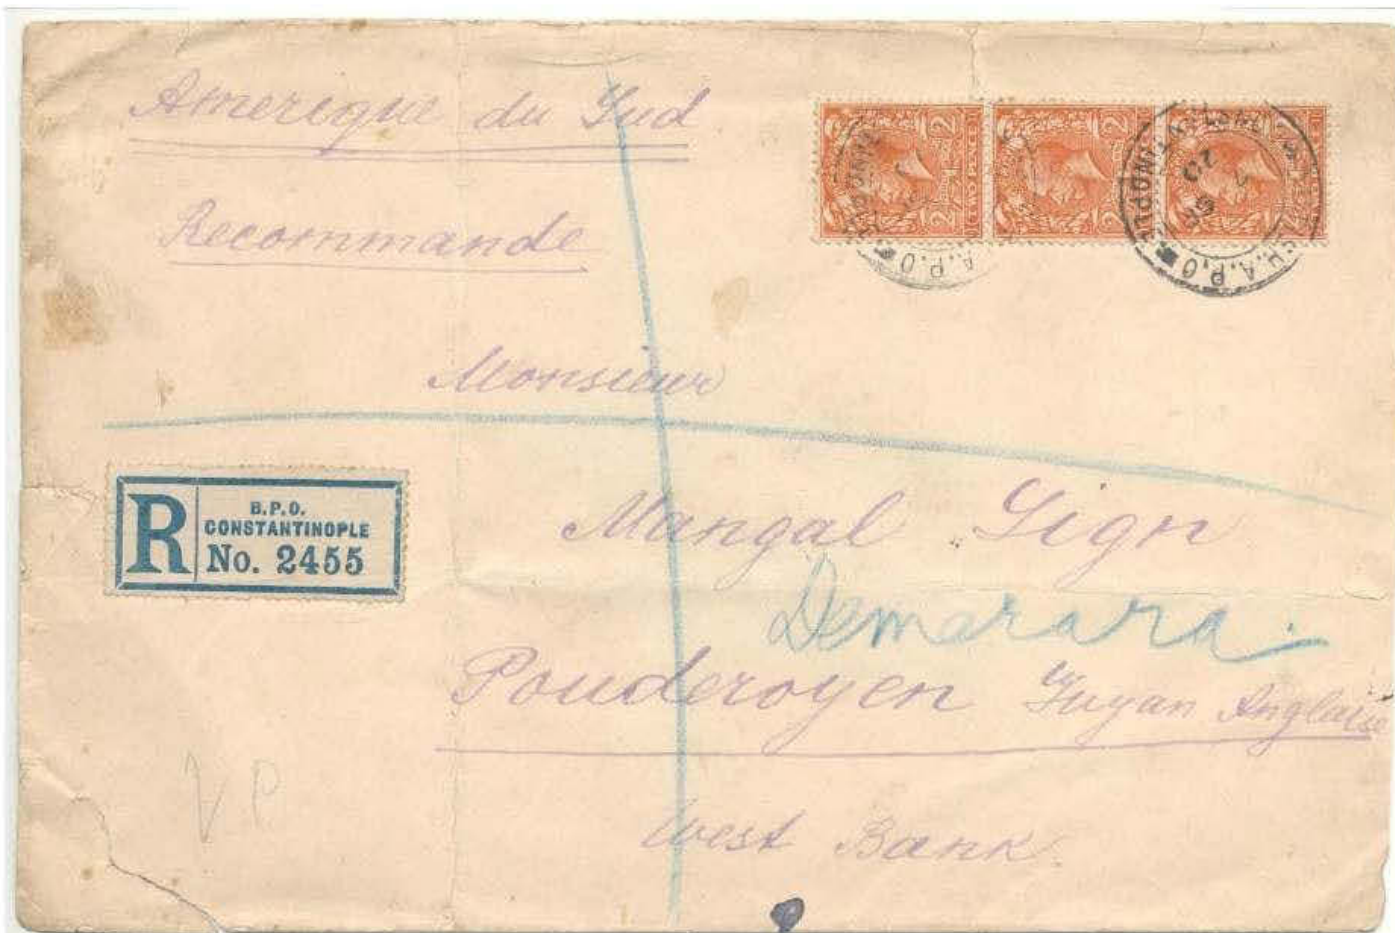 Amerique du Sud
Recommande
Monsieur
R
B.P.O.
CONSTANTINOPLE
No. 2455
Mangal Sign
Demerara
Pouderoyen Guyan Anglaise
West Bank
V.P
A.P.O
A.P.O